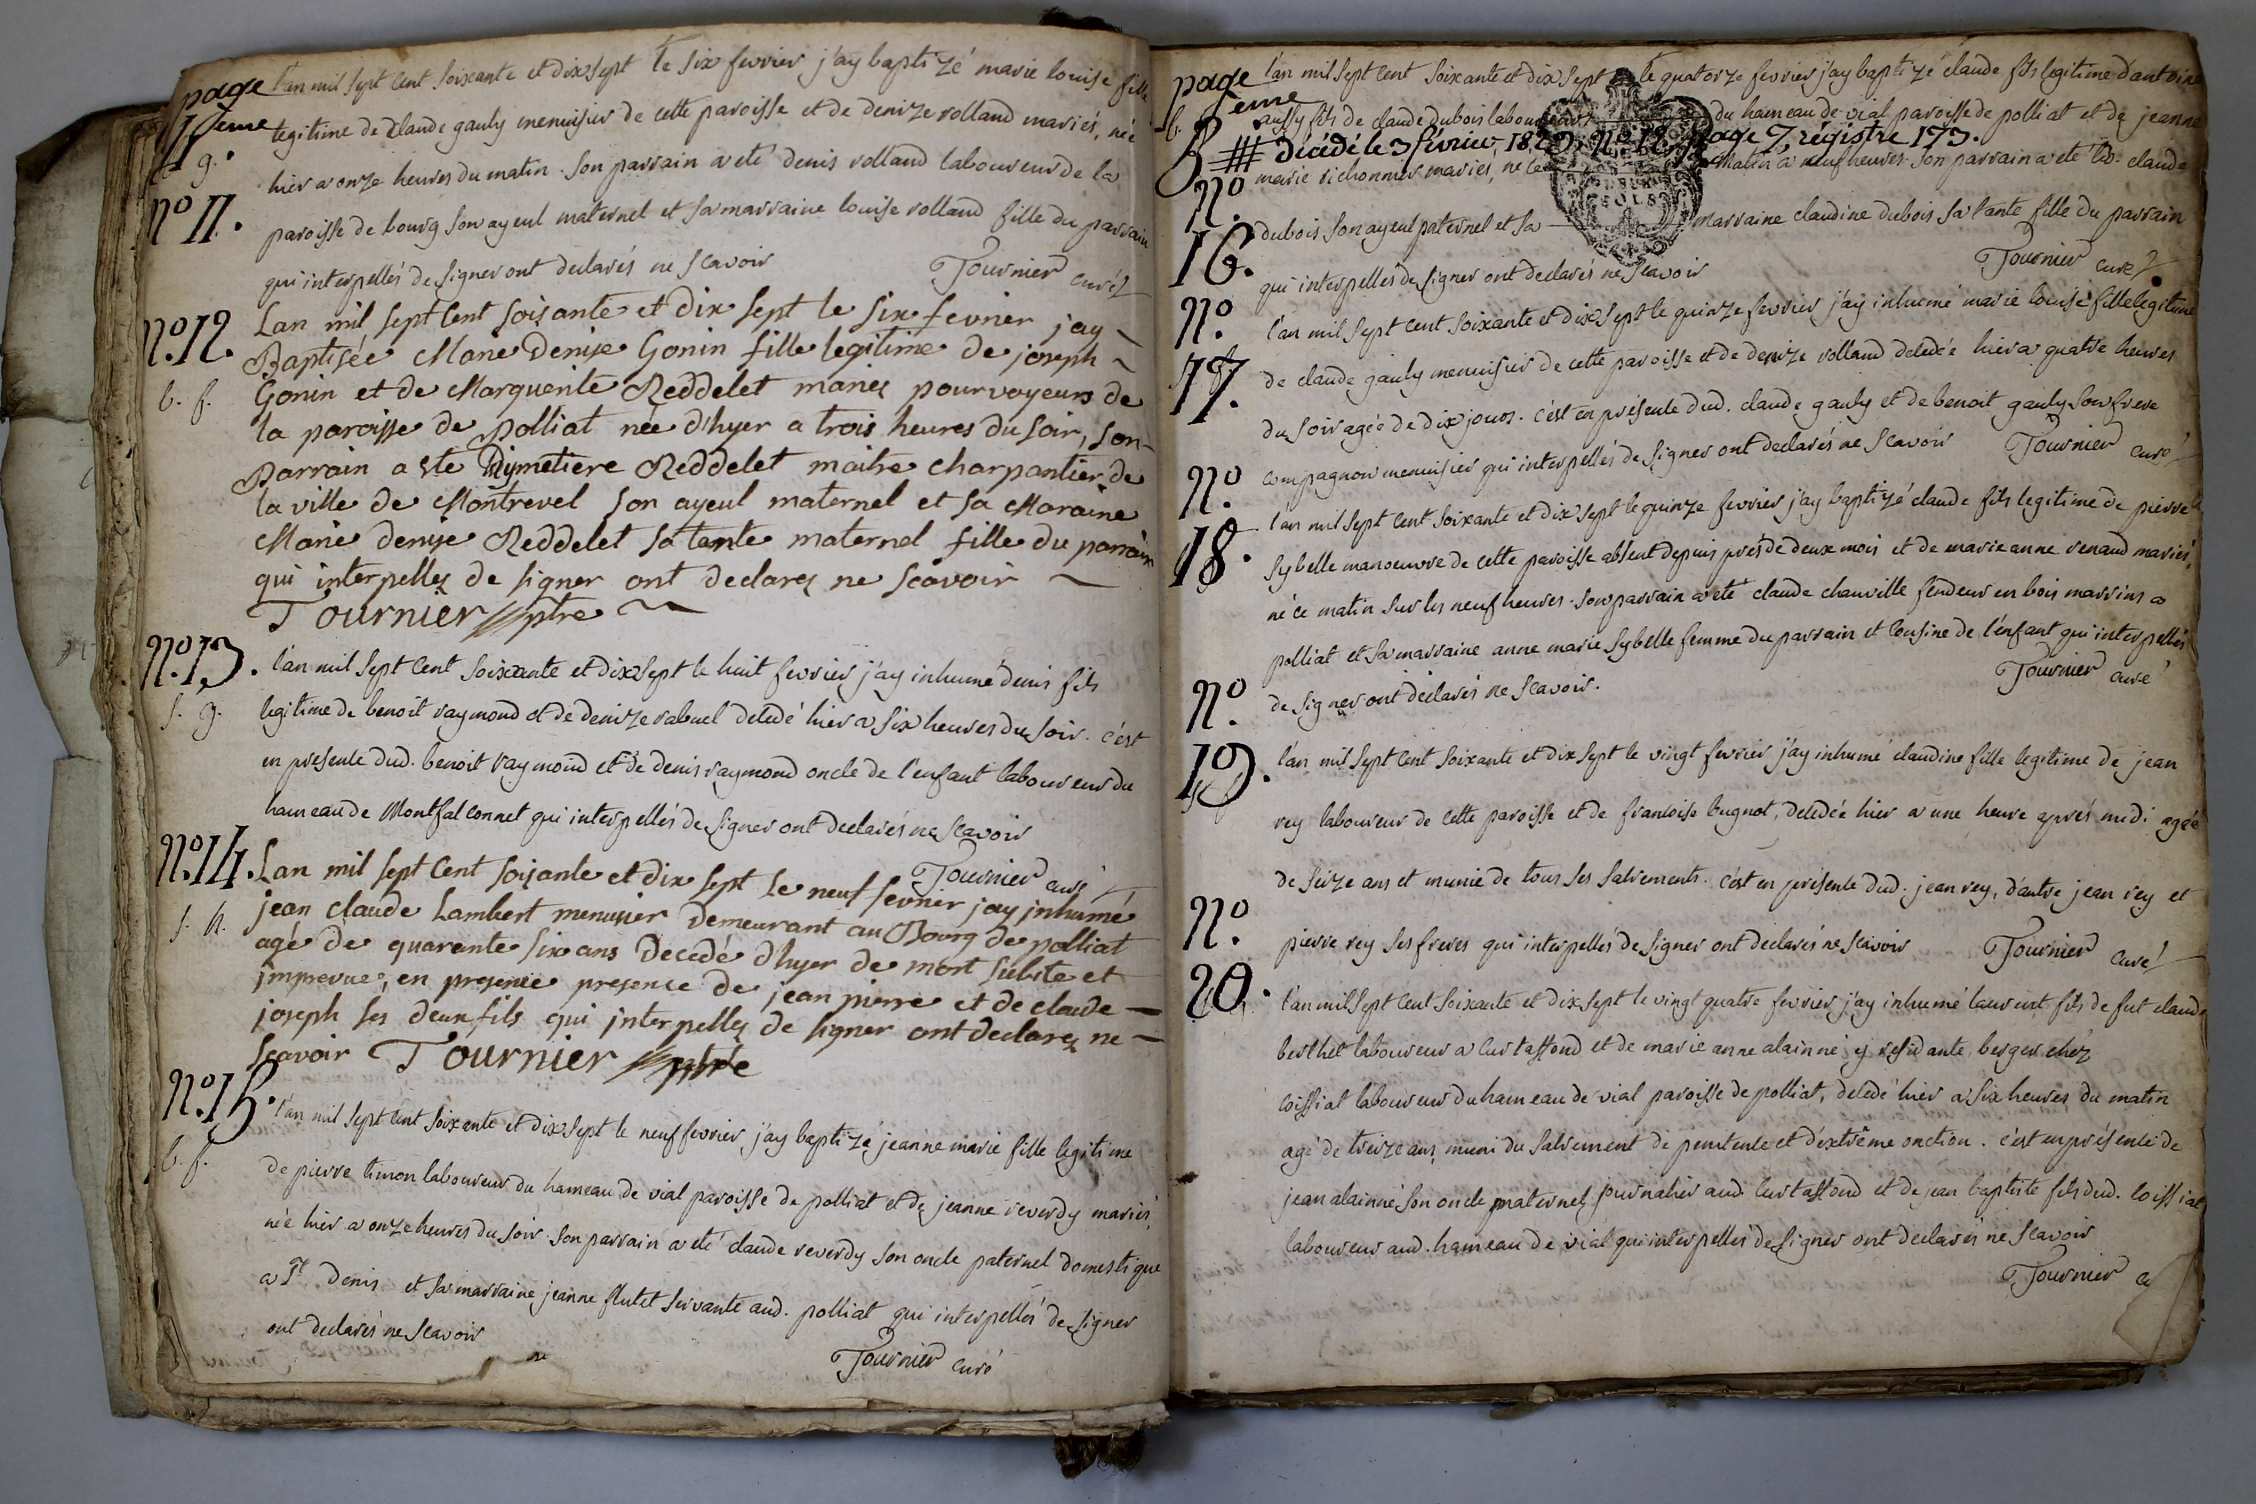 page
4eme
g.
n.º 11.
l'an mil sept cent soixante et dix sept le six fevrier j'ay baptizé marie louise fille
legitime de claude gauly menuisier de cette paroisse et de denize rolland mariés, née
hier a onze heures du matin. son parrain a eté denis rolland laboureur de la
paroisse de bourg son ayeul maternel et sa marraine louise rolland fille du parrain
qui interpellés de signer ont declarés ne scavoir Tournier curé
n.º 12.
b. f.
Lan mil sept cent soixante et dix sept le six fevrier jay
Baptisée Marie Denise Gonin fille legitime de joseph
Gonin et de Marguerite Reddelet mariez pourvoyeurs de
la paroisse de Polliat née d'hyer a trois heures du soir, son
Parrain a ete Dymetiere Reddelet maitre charpantier de
la ville de Montrevel son ayeul maternel et sa Maraine
Marie denise Reddelet sa tante maternel fille du parrain
qui interpellez de signer ont declarez ne scavoir
Tournier ptre
n.º 13.
s. g.
l'an mil sept cent soixante et dix sept le huit fevrier j'ay inhumé denis fils
legitime de benoit raymond et de denize rabuel decedé hier a six heures du soir. c'est
en presence dud. benoit raymond et de denis raymond oncle de l'enfant laboureur du
hameau de Montfalconnet qui interpellés de signer ont declarés ne scavoir
Tournier curé
n.º 14.
s. h.
Lan mil sept cent soixante et dix sept le neuf fevrier jay inhumé
jean claude Lambert menusier demeurant au Bourg de polliat
agé de quarante six ans Decedé d'hyer de mort subite et
imprevue, en presence presence de jean pierre et de claude
joseph ses deux fils qui interpellez de signer ont declarez ne
scavoir Tournier ptre
n.º 15.
b. f.
l'an mil sept cent soixante et dix sept le neuf fevrier j'ay baptizé jeanne marie fille legitime
de pierre timon laboureur du hameau de vial paroisse de polliat et de jeanne reverdy mariés,
née hier a onze heures du soir. son parrain a eté claude reverdy son oncle paternel domestique
a St. Denis et sa marraine jeanne flutet servante aud. polliat qui interpellés de signer
ont declarés ne scavoir
Tournier curé
page
5eme
b.
n.º
16.
l'an mil sept cent soixante et dix sept le quatorze fevrier j'ay baptizé claude fils legitime d'antoine
aussy fils de claude dubois laboureur du hameau de vial paroisse de polliat et de jeanne
décédé le 3 février 1823, n.º 18, page 7, régistre 173.
marie richonnier mariés, né le matin a neuf heures. son parrain a eté led. claude
dubois son ayeul paternel et sa marraine claudine dubois sa tante fille du parrain
qui interpellés de signer ont declarés ne scavoir Tournier curé
n.º
17.
l'an mil sept cent soixante et dix sept le quinze fevrier j'ay inhumé marie louise fille legitime
de claude gauly menuisier de cette paroisse et de denize rolland decedée hier a quatre heures
du soir agée de dix jours. c'est en présence dud. claude gauly et de benoit gauly son frere
compagnon menuisier qui interpellés de signer ont declarés ne scavoir Tournier curé
n.º
18.
l'an mil sept cent soixante et dix sept le quinze fevrier j'ay baptizé claude fils legitime de pierre
sybelle manoeuvre de cette paroisse absent depuis près de deux mois et de marie anne renaud mariés,
né ce matin sur les neuf heures. son parrain a eté claude chanville fendeur en bois marrins a
polliat et sa marraine anne marie sybelle femme du parrain et cousine de l'enfant qui interpellés
de signer ont déclarés ne scavoir. Tournier curé
n.º
19.
l'an mil sept cent soixante et dix sept le vingt fevrier j'ay inhumé claudine fille legitime de jean
rey laboureur de cette paroisse et de francoise bugnot, decedée hier a une heure après midi agée
de seize ans et munie de tous ses sacrements. c'est en présence dud. jean rey, d'autre jean rey et
pierre rey ses freres qui interpellés de signer ont declarés ne scavoir Tournier curé
n.º
20.
l'an mil sept cent soixante et dix sept le vingt quatre fevrier j'ay inhumé laurent fils de fut claude
berthet laboureur a curtaffond et de marie anne alainné y residante, berger chez
coissiat laboureur du hameau de vial paroisse de polliat, decedé hier a six heures du matin
agé de treize ans, muni du sacrement de penitence et d'extrême onction. c'est en présence de
jean alainné son oncle maternel journalier aud. curtaffond et de jean baptiste fils dud. coissiat
laboureur aud. hameau de vial qui interpellés de signer ont declarés ne scavoir
Tournier